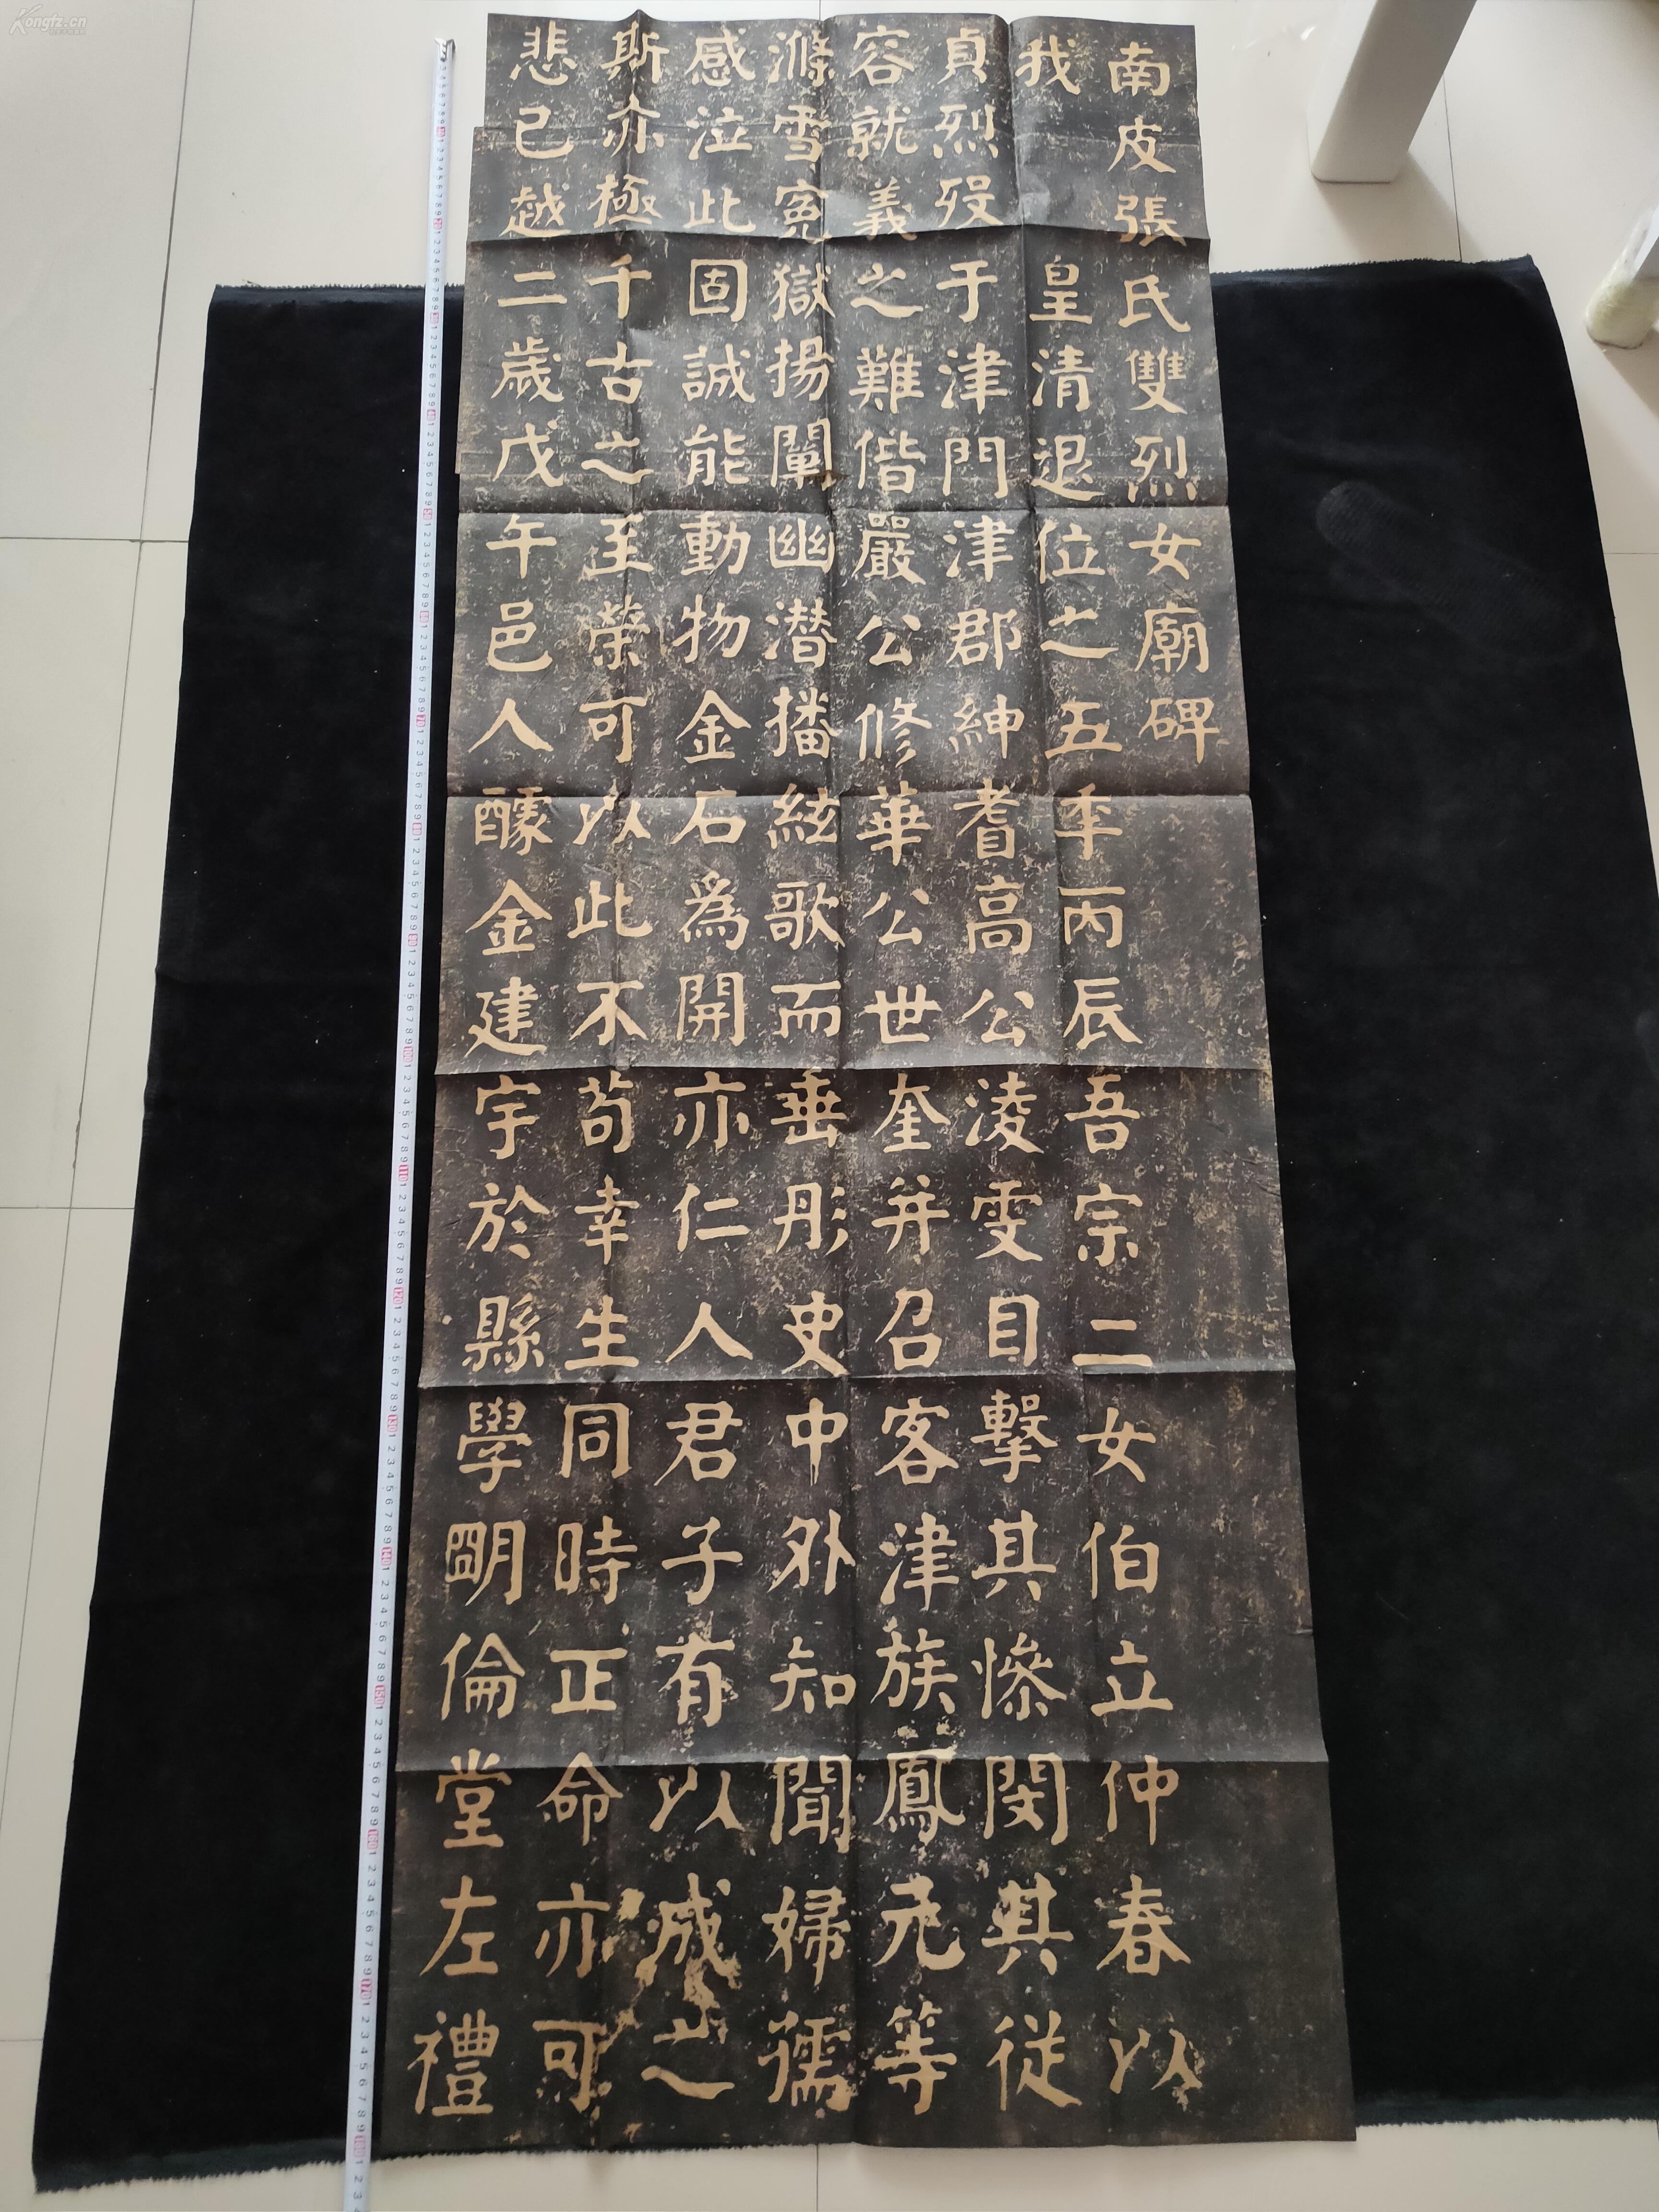 南皮張氏雙烈女廟碑
我皇清退位之五秊丙辰吾宗二女伯立仲春以
貞烈歿于津門津郡紳耆高公淩雯目擊其慘閔其從
容就義之難偕嚴公修華公世奎并召客津族鳳元等
滌雪寃獄揚闡幽潜播絃歌而垂彤史中外知聞婦孺
感泣此固誠能動物金石爲開亦仁人君子有以成之
斯亦極千古之至榮可以此不苟幸生同時正命亦可
悲已越二歲戊午邑人醵金建宇於縣學朙倫堂左禮
Kongfz.cn